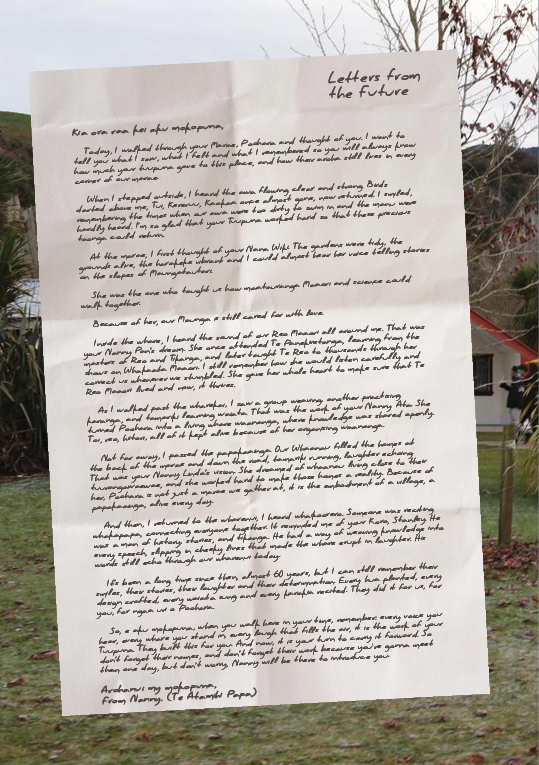 Letters from
the future
Kia ora raa kei aku mokopuna,
Today, I walked through your Marae, Poohara and thought of you. I want to
tell you what I saw, what I felt and what I remembered so you will always know
how much your tuupuna gave to this place, and how their aroha still lives in every
corner of our marae
When I stepped outside, I heard the awa flowing clear and strong. Birds
darted above me, Tui, Kereru, Kaakaa once almost gone, now returned. I smiled,
remembering the times when our awa were too dirty to swim in and the manu were
hardly heard. I'm so glad that your Tuupuna worked hard so that these precious
taonga could return.
At the marae, I first thought of your Nana Wiki. The gardens were tidy, the
grounds alive, the harakeke vibrant and I could almost hear her voice telling stories
on the slopes of Maungatautari
She was the one who taught us how maatauranga Maaori and science could
walk together.
Because of her, our Maunga is still cared for with love.
Inside the whare, I heard the sound of our Reo Maaori all around me. That was
your Nanny Pani's dream. She once attended Te Panekiretanga, learning from the
masters of Reo and Tikanga, and later taught Te Reo to thousands through her
shows on Whakaata Maaori. I still remember how she would listen carefully and
correct us whenever we stumbled. She gave her whole heart to make sure that Te
Reo Maaori lived and now, it thrives.
As I walked past the wharekai, I saw a group weaving another practising
karanga, and tamariki learning waiata. That was the work of your Nanny Ata. She
turned Poohara into a living where waananga, where knowledge was shared openly.
Toi, reo, kitan, all of it kept alive because of her organising waananga.
Not far away, I passed the papakaainga. Our Whaanau filled the homes at
the back of the marae and down the road, tamariki running, laughter echoing.
That was your Nanny Linda's vision. She dreamed of whaanau living close to their
tuurangawaewae, and she worked hard to make those homes a reality. Because of
her, Poohara is not just a marae we gather at, it is the embodiment of a village, a
papakaainga, alive every day.
And then, I returned to the wharenui, I heard whaikoorero. Someone was reciting
whakapapa, connecting everyone together. It reminded me of your Koro, Stanley. He
was a man of history, stories, and tikanga. He had a way of weaving knowledge into
every speech, slipping in cheeky lines that made the whare erupt in laughter. His
words still echo through our wharenui today.
It's been a long time since then, almost 60 years, but I can still remember their
smiles, their stories, their laughter and their determination. Every hua planted, every
design crafted, every waiata sung and every karakia recited. They did it for us, for
you, for ngaa uri o Poohara.
So, e aku mokopuna, when you walk here in your time, remember: every voice you
hear, every whare you stand in, every laugh that fills the air, it is the work of your
Tuupuna. They built this for you. And now, it is your turn to carry it forward. So
don't forget their names, and don't forget their work because you're gonna meet
them one day, but don't worry, Nanny will be there to introduce you.
Arohanui my mokopuna,
From Nanny. (Te Ataahi Papa)